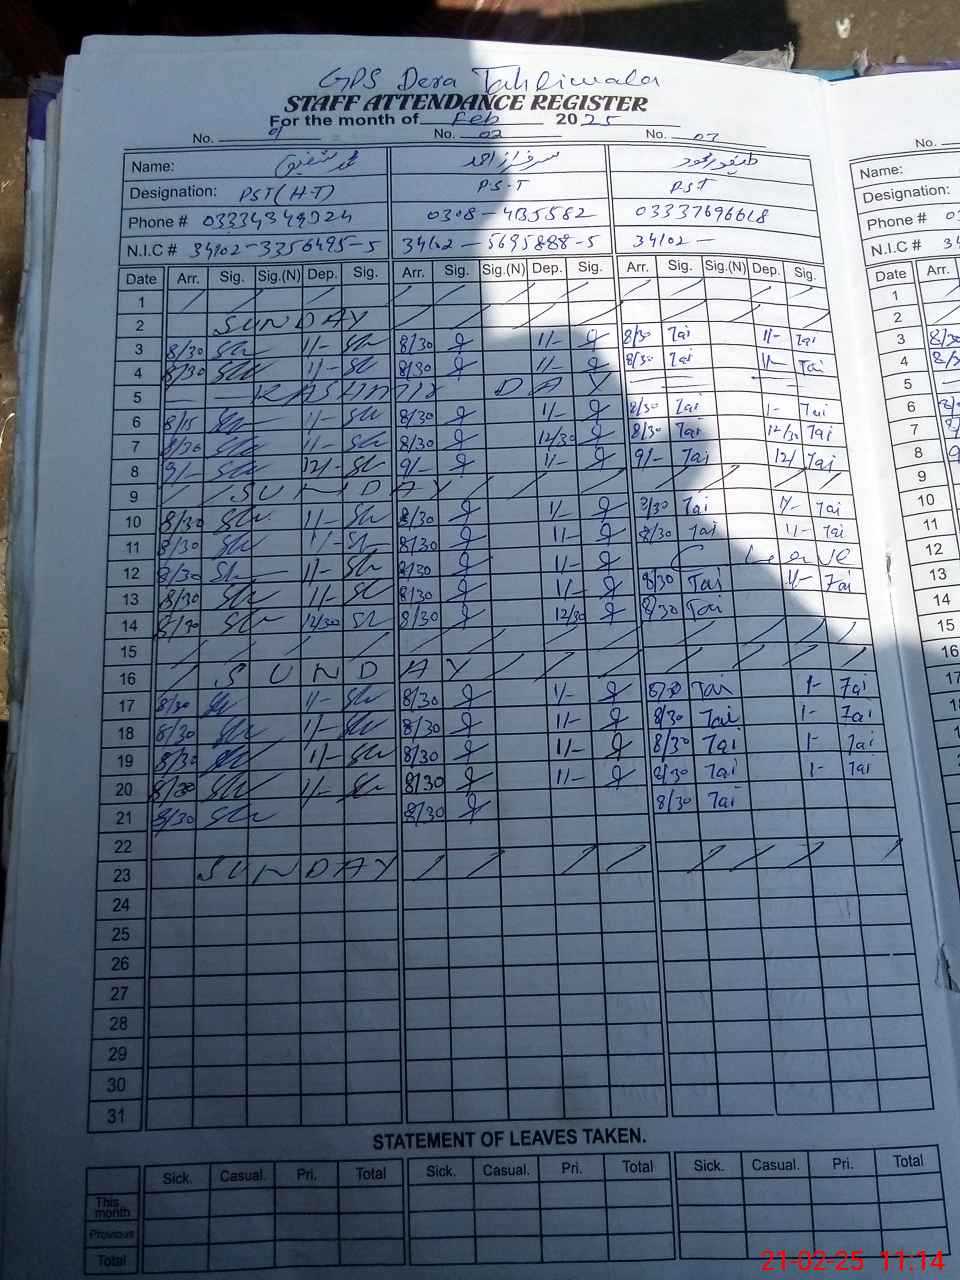 GPS Dera Tahliwala
STAFF ATTENDANCE REGISTER
For the month of Feb 2025
No. 01 No. 02 No. 03 No.
Name: محمد شفیق سرفراز احمد Name:
Designation: PST (H-T) P.S-T PST Designation:
Phone # 03334349324 0308-4135582 03337696618 Phone # 03
N.I.C # 34102-3356495-5 34102-5695888-5 34102- N.I.C # 34
Date Arr. Sig. Sig.(N) Dep. Sig. Arr. Sig. Sig.(N) Dep. Sig. Arr. Sig. Sig.(N) Dep. Sig. Date Arr.
1 1
2 SUNDAY 2
3 8/30 1/- 8/30 1/- 8/30 Tai 1/- Tai 3 8/30
4 8/30 1/- 8/30 1/- 8/30 Tai 1/- Tai 4
5 KASHMIR DAY 5
6 8/15 1/- 8/30 1/- 8/30 Tai 1- Tai 6
7 8/30 1/- 8/30 12/30 8/30 Tai 12/30 Tai 7
8 9/- 12/- 9/- 1/- 9/- Tai 12/ Tai 8
9 SUNDAY 9
10 8/30 1/- 8/30 1/- 8/30 Tai 1/- Tai 10
11 8/30 1/- 8/30 1/- 8/30 Tai 1/- Tai 11
12 8/30 1/- 8/30 1/- C Leave 12
13 8/30 1/- 8/30 1/- 8/30 Tai 1/- Tai 13
14 8/30 12/30 8/30 12/30 8/30 Tai 14
15 15
16 SUNDAY 16
17 8/30 1/- 8/30 1/- 8/30 Tai 1- Tai 17
18 8/30 1/- 8/30 1/- 8/30 Tai 1- Tai
19 8/30 1/- 8/30 1/- 8/30 Tai 1- Tai 19
20 8/30 1/- 8/30 1/- 8/30 Tai 1- Tai 20
21 8/30 8/30 8/30 Tai
22
23 SUNDAY
24
25
26
27
28
29
30
31
STATEMENT OF LEAVES TAKEN.
Sick. Casual. Pri. Total Sick. Casual. Pri. Total Sick. Casual. Pri. Total
This month
Previous
Total
21-02-25 11:14